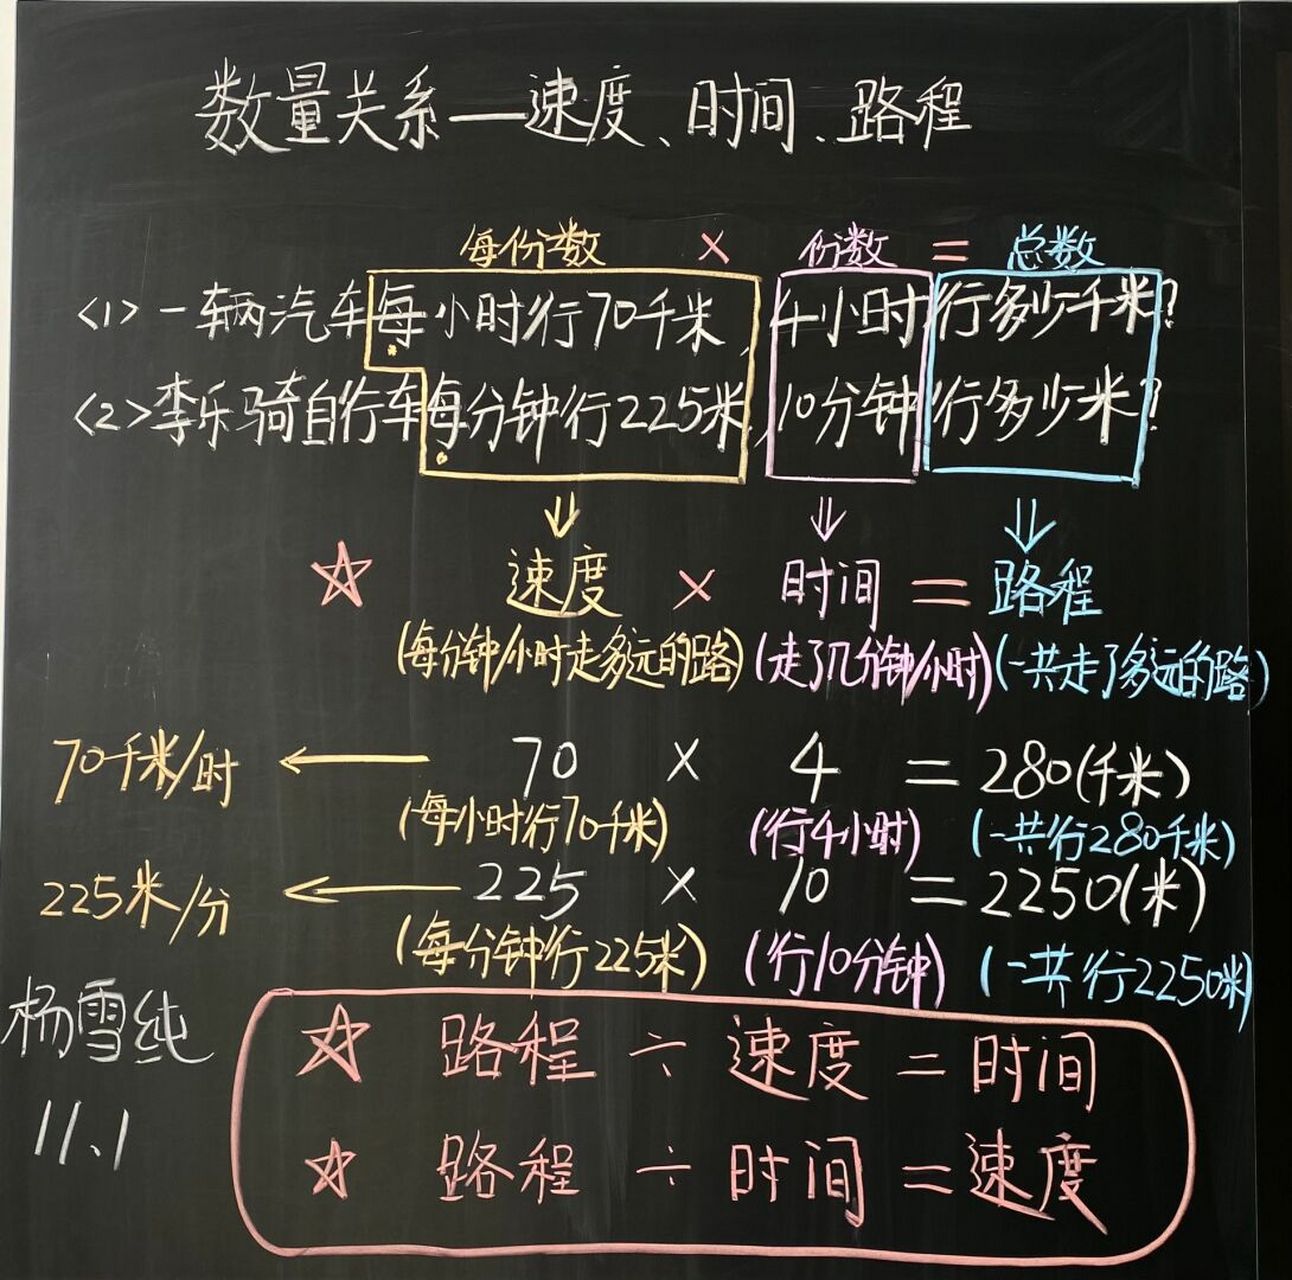 数量关系—速度、时间、路程
每份数 × 份数 = 总数
<1>一辆汽车每小时行70千米,4小时行多少千米?
<2>李乐骑自行车每分钟行225米,10分钟行多少米?
⇓ ⇓ ⇓
☆ 速度 × 时间 = 路程
(每分钟/小时走多远的路)(走了几分钟/小时)(一共走了多远的路)
70千米/时 ← 70 × 4 = 280(千米)
(每小时行70千米) (行4小时) (一共行280千米)
225米/分 ← 225 × 10 = 2250(米)
(每分钟行225米) (行10分钟) (一共行2250米)
杨雪纯
11.1
☆ 路程 ÷ 速度 = 时间
☆ 路程 ÷ 时间 = 速度